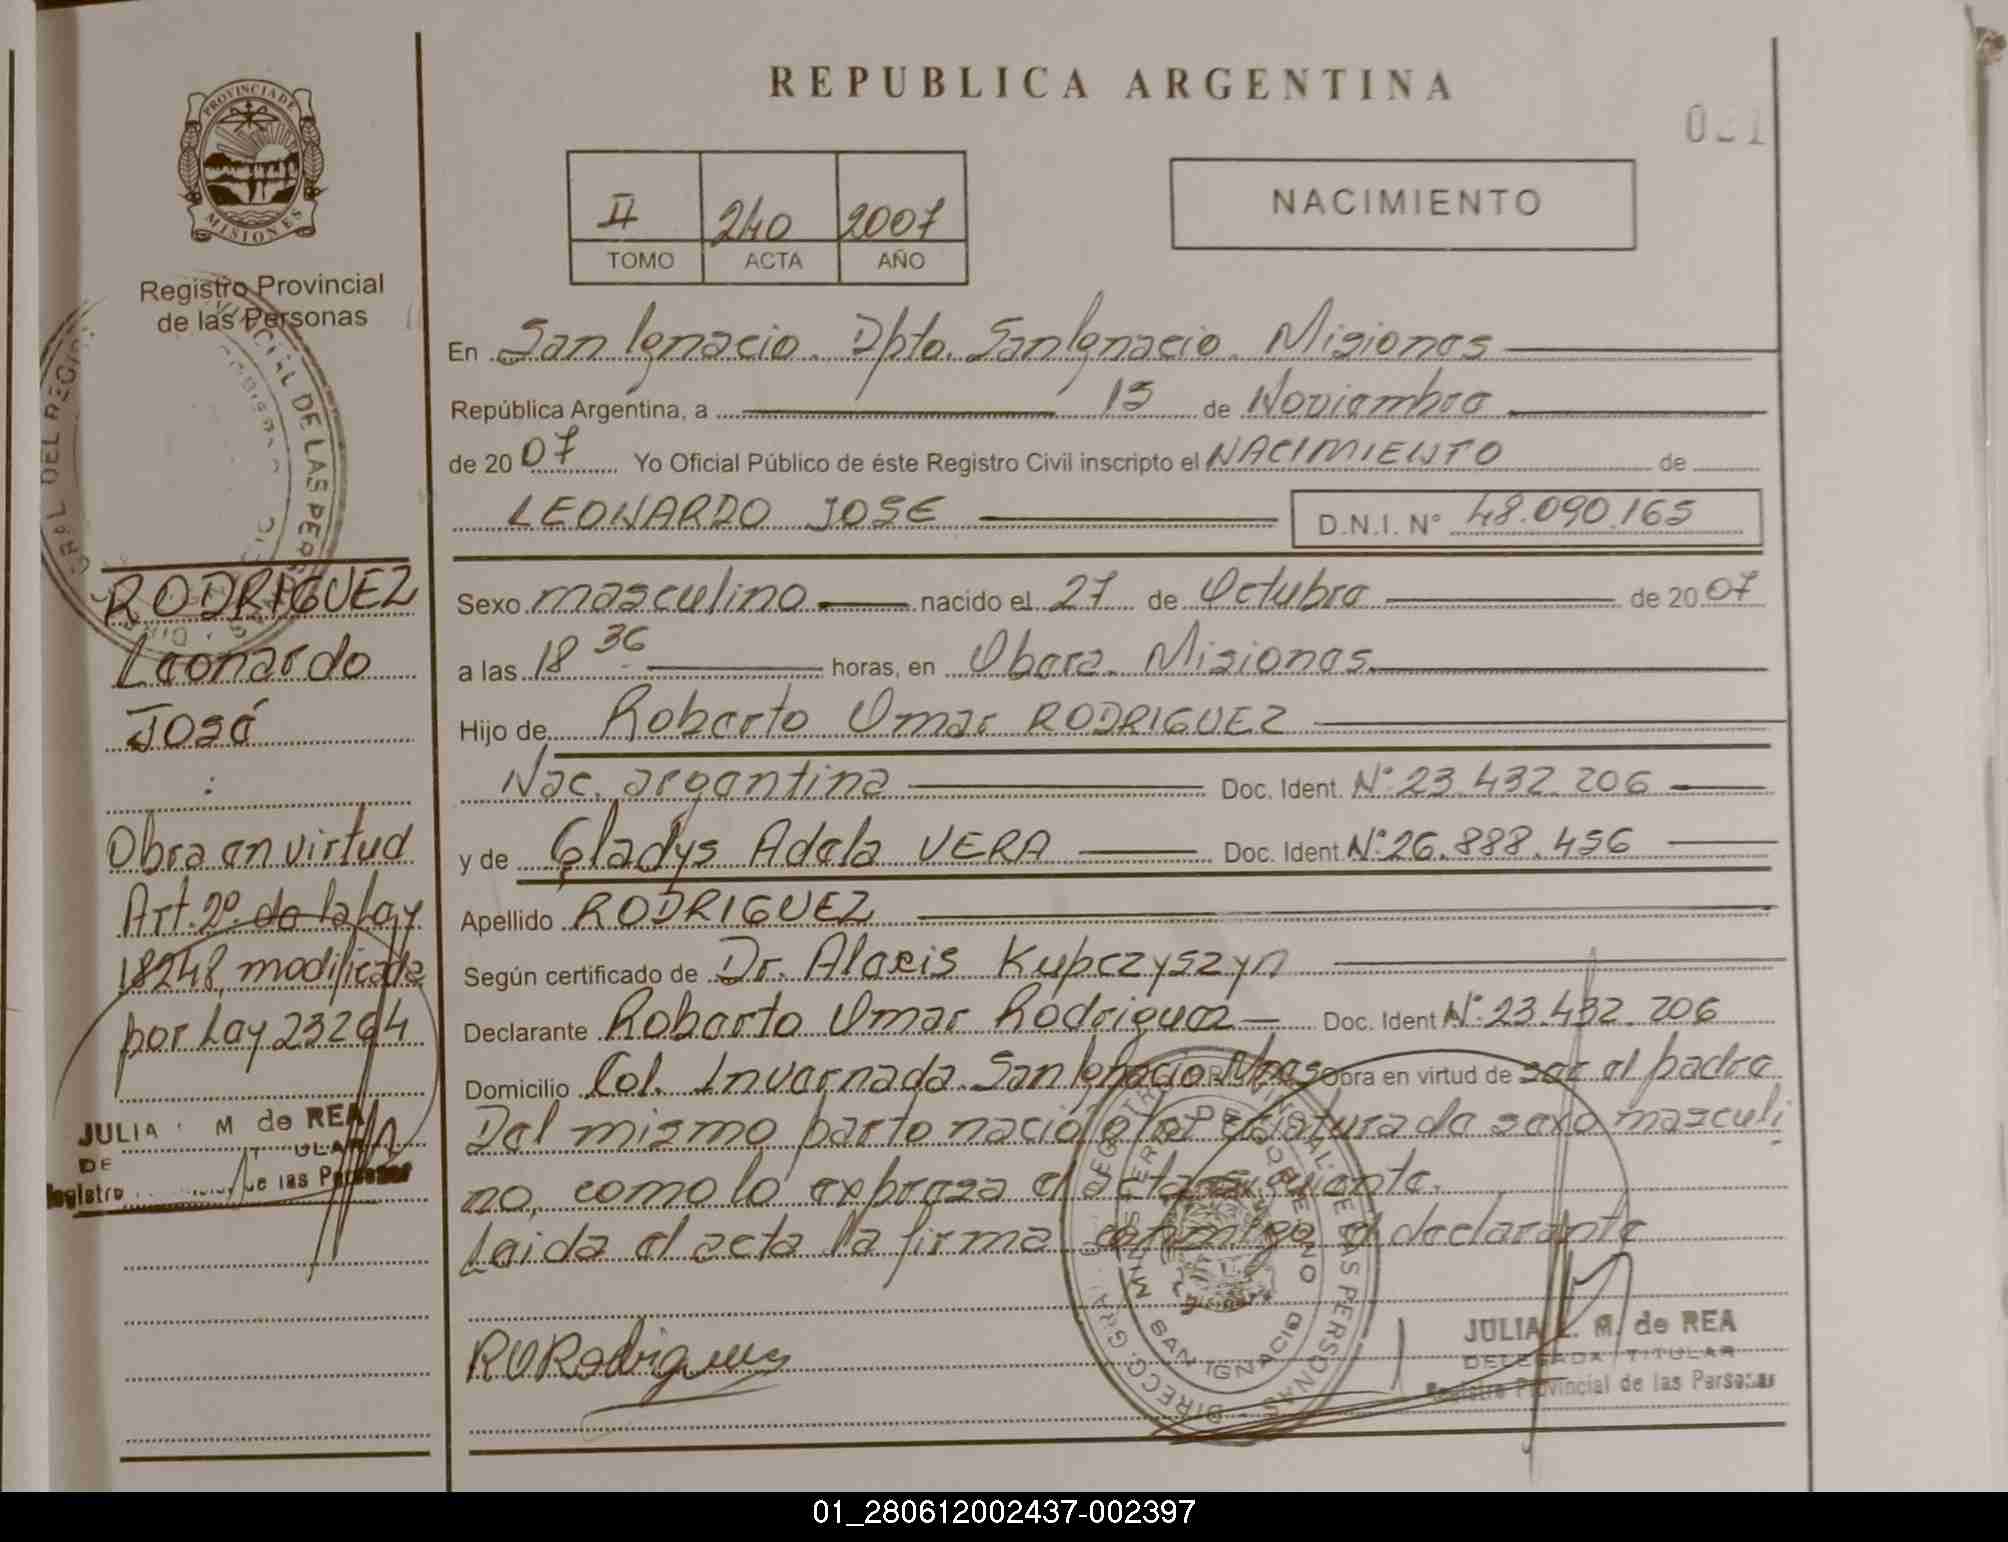 REPUBLICA ARGENTINA
PROVINCIA DE
MISIONES
Registro Provincial
de las Personas
II 240 2007
TOMO ACTA AÑO
NACIMIENTO
En San Ignacio. Dpto. San Ignacio. Misiones
República Argentina, a 15 de Noviembre
de 2007 Yo Oficial Público de éste Registro Civil inscripto el NACIMIENTO de
LEONARDO JOSE D.N.I. N° 48.090.165
Sexo masculino nacido el 27 de Octubre de 2007
a las 18 36 horas, en Obera. Misiones.
Hijo de Roberto Omar RODRIGUEZ
Nac. argentina Doc. Ident. N° 23.432.206
y de Gladys Adela VERA Doc. Ident N° 26.888.456
Apellido RODRIGUEZ
Según certificado de Dr. Alexis Kupczyszyn
Declarante Roberto Omar Rodriguez Doc. Ident N° 23.432.206
Domicilio Col. Invernada San Ignacio Mnes Obra en virtud de ser el padre
Del mismo parto nació otra criatura de sexo masculi
no, como lo expresa el acta siguiente.
Leida el acta la firma conmigo el declarante
RORodriguez
JULIA E. M. de REA
DELEGADA TITULAR
Registro Provincial de las Personas
DIRECC. GRAL. DEL REGISTRO PROVINCIAL DE LAS PERSONAS
SAN IGNACIO
RODRIGUEZ
Leonardo
José
:
Obra en virtud
Art. 2° de la Ley
18248, modificada
por Ley 23264
JULIA M de REA
DE ULAR
Registro de las Personas
GRAL DEL REGIS
CIAL DE LAS PER
01_280612002437-002397